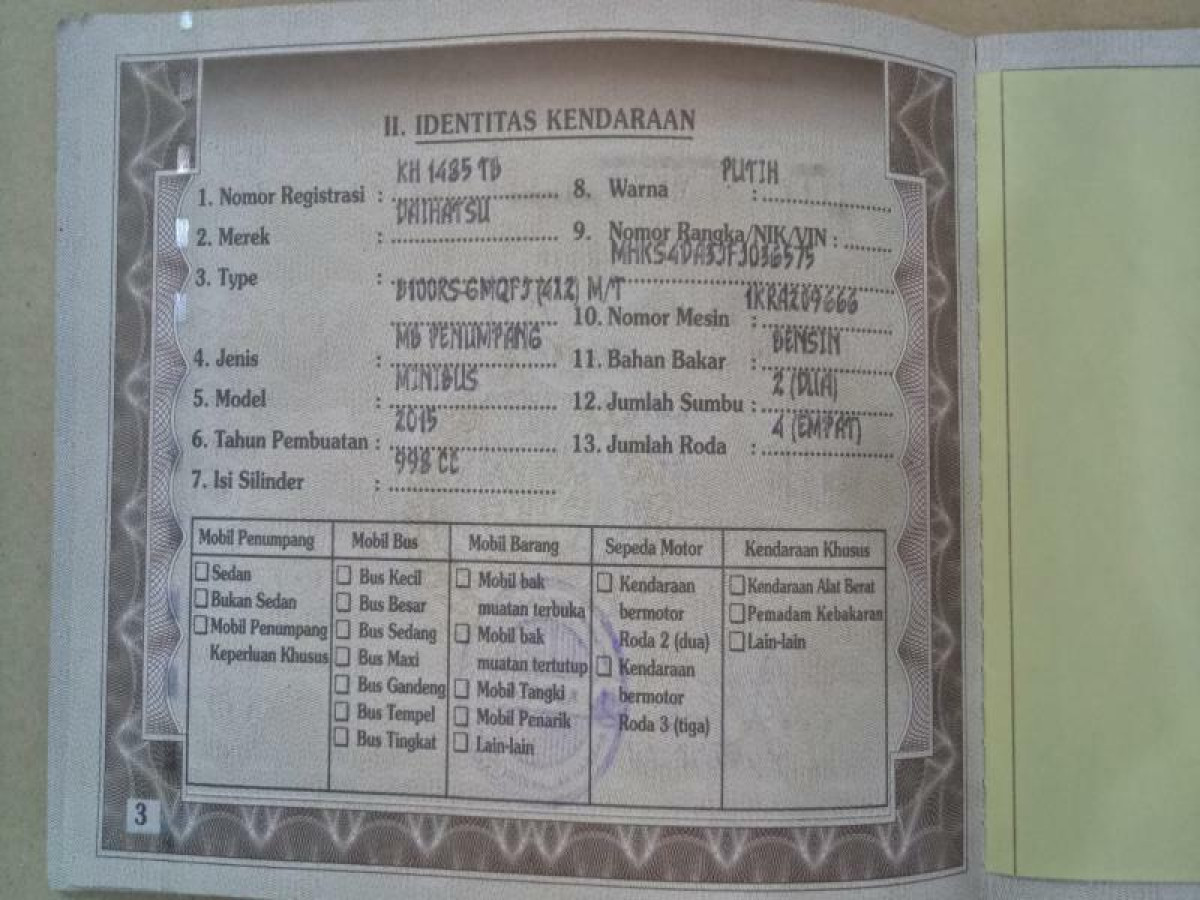 II. IDENTITAS KENDARAAN
1. Nomor Registrasi : KH 1485 TB
2. Merek : DAIHATSU
3. Type : B100RS-GMQFJ (4X2) M/T
4. Jenis : MB PENUMPANG
5. Model : MINIBUS
6. Tahun Pembuatan : 2015
7. Isi Silinder : 998 CC
8. Warna : PUTIH
9. Nomor Rangka/NIK/VIN :
MHKS4DA3JFJ036575
10. Nomor Mesin : 1KRA209666
11. Bahan Bakar : BENSIN
12. Jumlah Sumbu : 2 (DUA)
13. Jumlah Roda : 4 (EMPAT)
Mobil Penumpang
Sedan
Bukan Sedan
Mobil Penumpang
Keperluan Khusus
Mobil Bus
Bus Kecil
Bus Besar
Bus Sedang
Bus Maxi
Bus Gandeng
Bus Tempel
Bus Tingkat
Mobil Barang
Mobil bak
muatan terbuka
Mobil bak
muatan tertutup
Mobil Tangki
Mobil Penarik
Lain-lain
Sepeda Motor
Kendaraan
bermotor
Roda 2 (dua)
Kendaraan
bermotor
Roda 3 (tiga)
Kendaraan Khusus
Kendaraan Alat Berat
Pemadam Kebakaran
Lain-lain
3